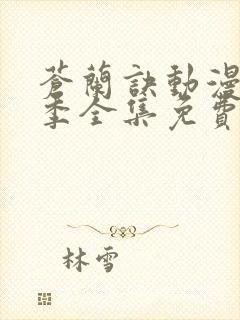 蒼蘭訣動漫
季全集免費
林雪